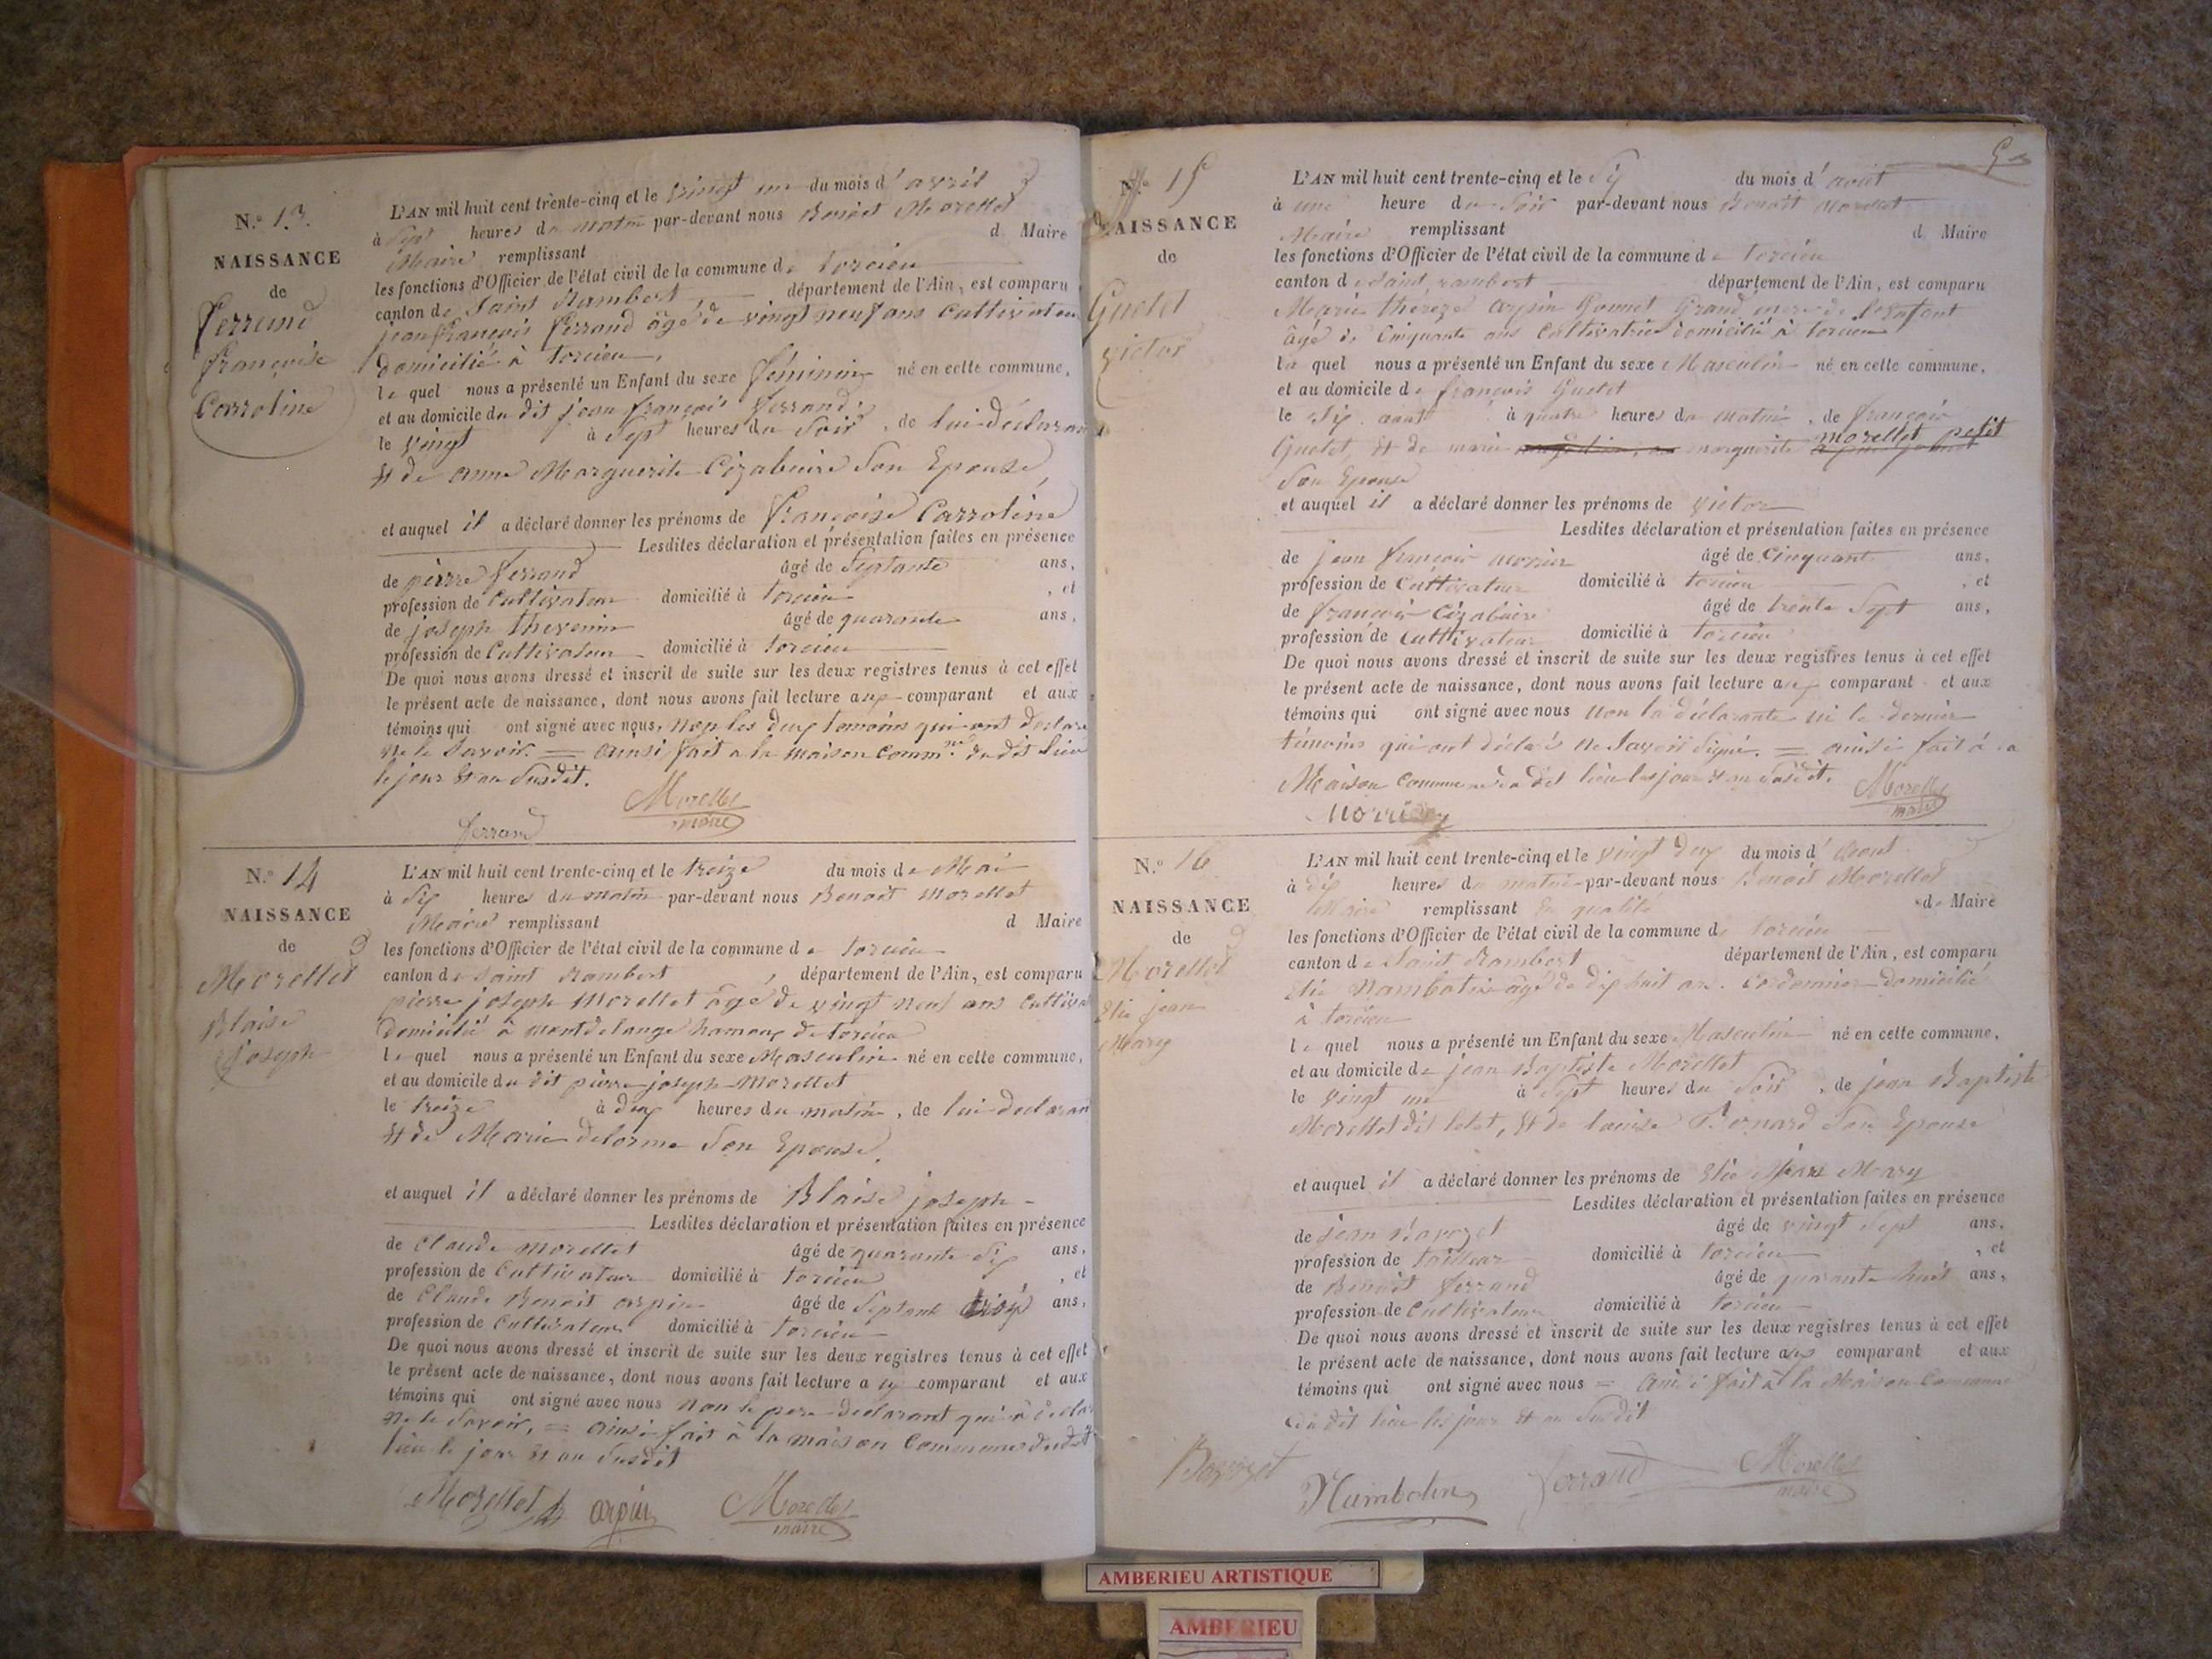 N.º 13.
NAISSANCE
de
ferrand
françoise
Carroline
L'AN mil huit cent trente-cinq et le vingt un du mois d'avril
à Sept heures du matin par-devant nous Benoit Morellet
Maire remplissant d Maire
les fonctions d'Officier de l'état civil de la commune de torcieu
canton de Saint Rambert département de l'Ain, est comparu
jean françois ferrand âgé de vingt neuf ans Cultivateur
domicilié à torcieu,
le quel nous a présenté un Enfant du sexe féminin né en cette commune,
et au domicile du dit jean françois ferrand,
le vingt à Sept heures du Soir, de lui déclarant
et de anne Marguerite Cizabuire Son Epouse,
et auquel il a déclaré donner les prénoms de françoise Carroline
Lesdites déclaration et présentation faites en présence
de pierre ferrand âgé de Septante ans,
profession de Cultivateur domicilié à torcieu, et
de joseph thevenin âgé de quarante ans,
profession de Cultivateur domicilié à torcieu
De quoi nous avons dressé et inscrit de suite sur les deux registres tenus à cet effet
le présent acte de naissance, dont nous avons fait lecture aux comparant et aux
témoins qui ont signé avec nous, non les deux temoins qui ont declaré
ne le Savoir. = ainsi fait a la maison Comm.ne du dit lieu
le jour et an Susdit.
Morellet
maire
ferrand
N.º 14
NAISSANCE
de
Morellet
Blaise
joseph
L'AN mil huit cent trente-cinq et le treize du mois de Mai
à Six heures du matin par-devant nous Benoit Morellet
Maire remplissant d Maire
les fonctions d'Officier de l'état civil de la commune de torcieu
canton de Saint Rambert, département de l'Ain, est comparu
pierre joseph Morellet âgé de vingt neuf ans Cultiva
domicilié à montdelange hameau de torcieu
le quel nous a présenté un Enfant du sexe Masculin né en cette commune,
et au domicile du dit pierre joseph Morellet
le treize à deux heures du matin, de lui declarant
et de Marie delorme Son Epouse.
et auquel il a déclaré donner les prénoms de Blaise joseph -
Lesdites déclaration et présentation faites en présence
de Claude Morellet âgé de quarante Six ans,
profession de Cultivateur domicilié à torcieu, et
de Claude Benoit arpin âgé de Septante ans,
profession de Cultivateur domicilié à torcieu
De quoi nous avons dressé et inscrit de suite sur les deux registres tenus à cet effet
le présent acte de naissance, dont nous avons fait lecture a comparant et aux
témoins qui ont signé avec nous non le pere declarant qui à declar
ne le Savoir, = ainsi fait à la maison Commune dudit
lieu le jour et an Susdit
Morellet arpin Morellet
maire
N.º 15
NAISSANCE
de
Guetet
victor
L'AN mil huit cent trente-cinq et le Six du mois d'août
à une heure du Soir par-devant nous Benoit Morellet
Maire remplissant d Maire
les fonctions d'Officier de l'état civil de la commune de torcieu
canton de Saint rambert département de l'Ain, est comparu
Marie thereze arpin Grand mere de l'enfant
âgé de Cinquante ans Cultivatrice domicilié à torcieu
la quel nous a présenté un Enfant du sexe Masculin né en cette commune,
et au domicile de françois Guetet
le Six aout à quatre heures du matin, de françois
Guetet, et de marie marguerite morellet petit
Son Epouse
et auquel il a déclaré donner les prénoms de victor
Lesdites déclaration et présentation faites en présence
de jean françois âgé de Cinquante ans,
profession de Cultivateur domicilié à torcieu, et
de françois Cizabuire âgé de trente Sept ans,
profession de Cultivateur domicilié à torcieu
De quoi nous avons dressé et inscrit de suite sur les deux registres tenus à cet effet
le présent acte de naissance, dont nous avons fait lecture aux comparant et aux
témoins qui ont signé avec nous non la déclarante ni le dernier
témoins qui ont déclaré ne Savoir Signé. = ainsi fait à la
Maison Commune du dit lieu les jour et an Susdit.
Morellet
maire
N.º 16
NAISSANCE
de
Morellet
Elie jean
Mary
L'AN mil huit cent trente-cinq et le vingt deux du mois d'aout
à dix heures du matin par-devant nous Benoit Morellet
Maire remplissant en qualité de Maire
les fonctions d'Officier de l'état civil de la commune de torcieu
canton de Saint Rambert département de l'Ain, est comparu
Elie âgé de dix huit ans. Cordonnier domicilié
à torcieu
le quel nous a présenté un Enfant du sexe Masculin né en cette commune,
et au domicile de jean Baptiste Morellet
le vingt un à Sept heures du Soir, de jean Baptiste
Morellet dit, et de louise Bonard Son Epouse
et auquel il a déclaré donner les prénoms de Elie jean Mary
Lesdites déclaration et présentation faites en présence
de jean âgé de vingt Sept ans,
profession de tailleur domicilié à torcieu, et
de Benoit ferrand âgé de quarante huit ans,
profession de Cultivateur domicilié à torcieu
De quoi nous avons dressé et inscrit de suite sur les deux registres tenus à cet effet
le présent acte de naissance, dont nous avons fait lecture aux comparant et aux
témoins qui ont signé avec nous = ainsi fait à la Maison Commune
du dit lieu les jour et an Susdit
ferrand Morellet
maire
AMBERIEU ARTISTIQUE
AMBERIEU